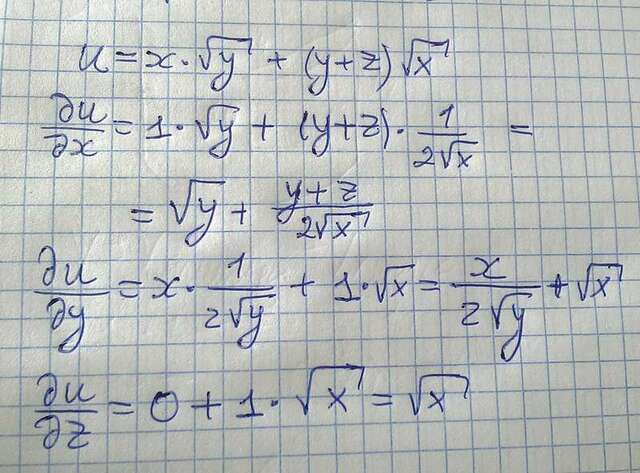 u = x · √y + (y+z) √x
∂u/∂x = 1 · √y + (y+z) · 1/(2√x) =
= √y + (y+z)/(2√x)
∂u/∂y = x · 1/(2√y) + 1 · √x = x/(2√y) + √x
∂u/∂z = 0 + 1 · √x = √x